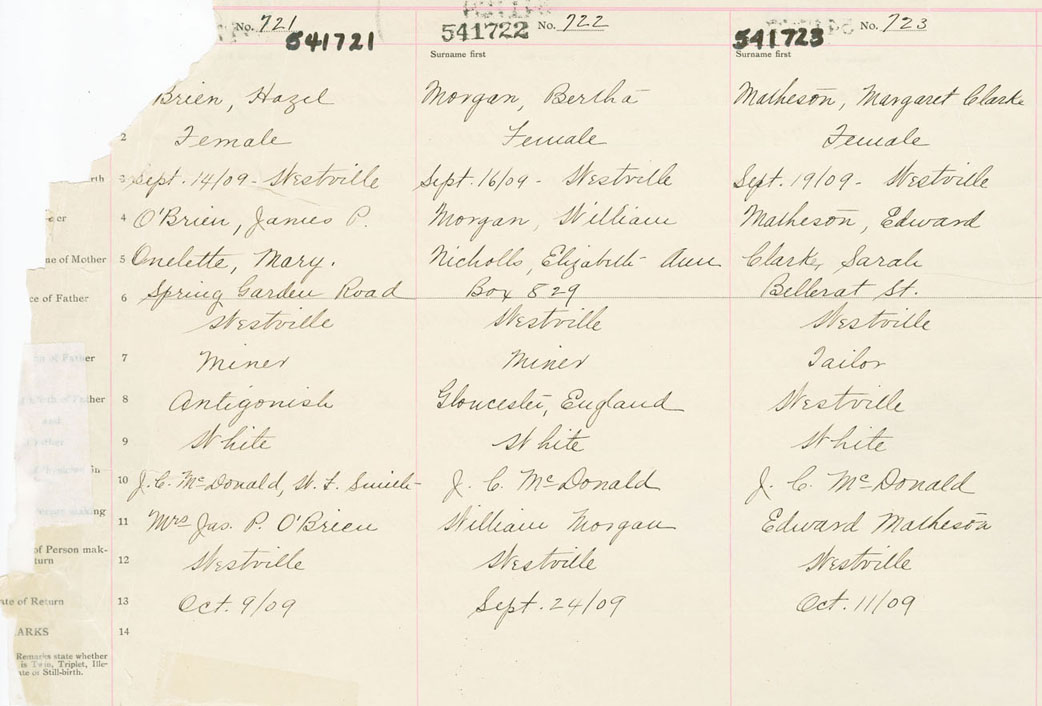 No. 721
541721
Brien, Hazel
2 Female
rth 3 Sept. 14/09 - Westville
er 4 O'Brien, James P.
ne of Mother 5 Onelette, Mary.
ce of Father 6 Spring Garden Road
Westville
of Father 7 Miner
8 Antigonish
9 White
10 J. C. McDonald, W. F. Smith
making 11 Mrs Jas. P. O'Brien
of Person mak-
turn 12 Westville
ate of Return 13 Oct. 9/09
ARKS 14
Remarks state whether
is Twin, Triplet, Ille-
ate or Still-birth.
No. 722
541722
Surname first
Morgan, Bertha
Female
Sept. 16/09 - Westville
Morgan, William
Nicholls, Elizabeth Ann
Box 829
Westville
Miner
Gloucester, England
White
J. C. McDonald
William Morgan
Westville
Sept. 24/09
No. 723
541723
Surname first
Matheson, Margaret Clarke
Female
Sept. 19/09 - Westville
Matheson, Edward
Clarke, Sarah
Bellerat St.
Westville
Tailor
Westville
White
J. C. McDonald
Edward Matheson
Westville
Oct. 11/09